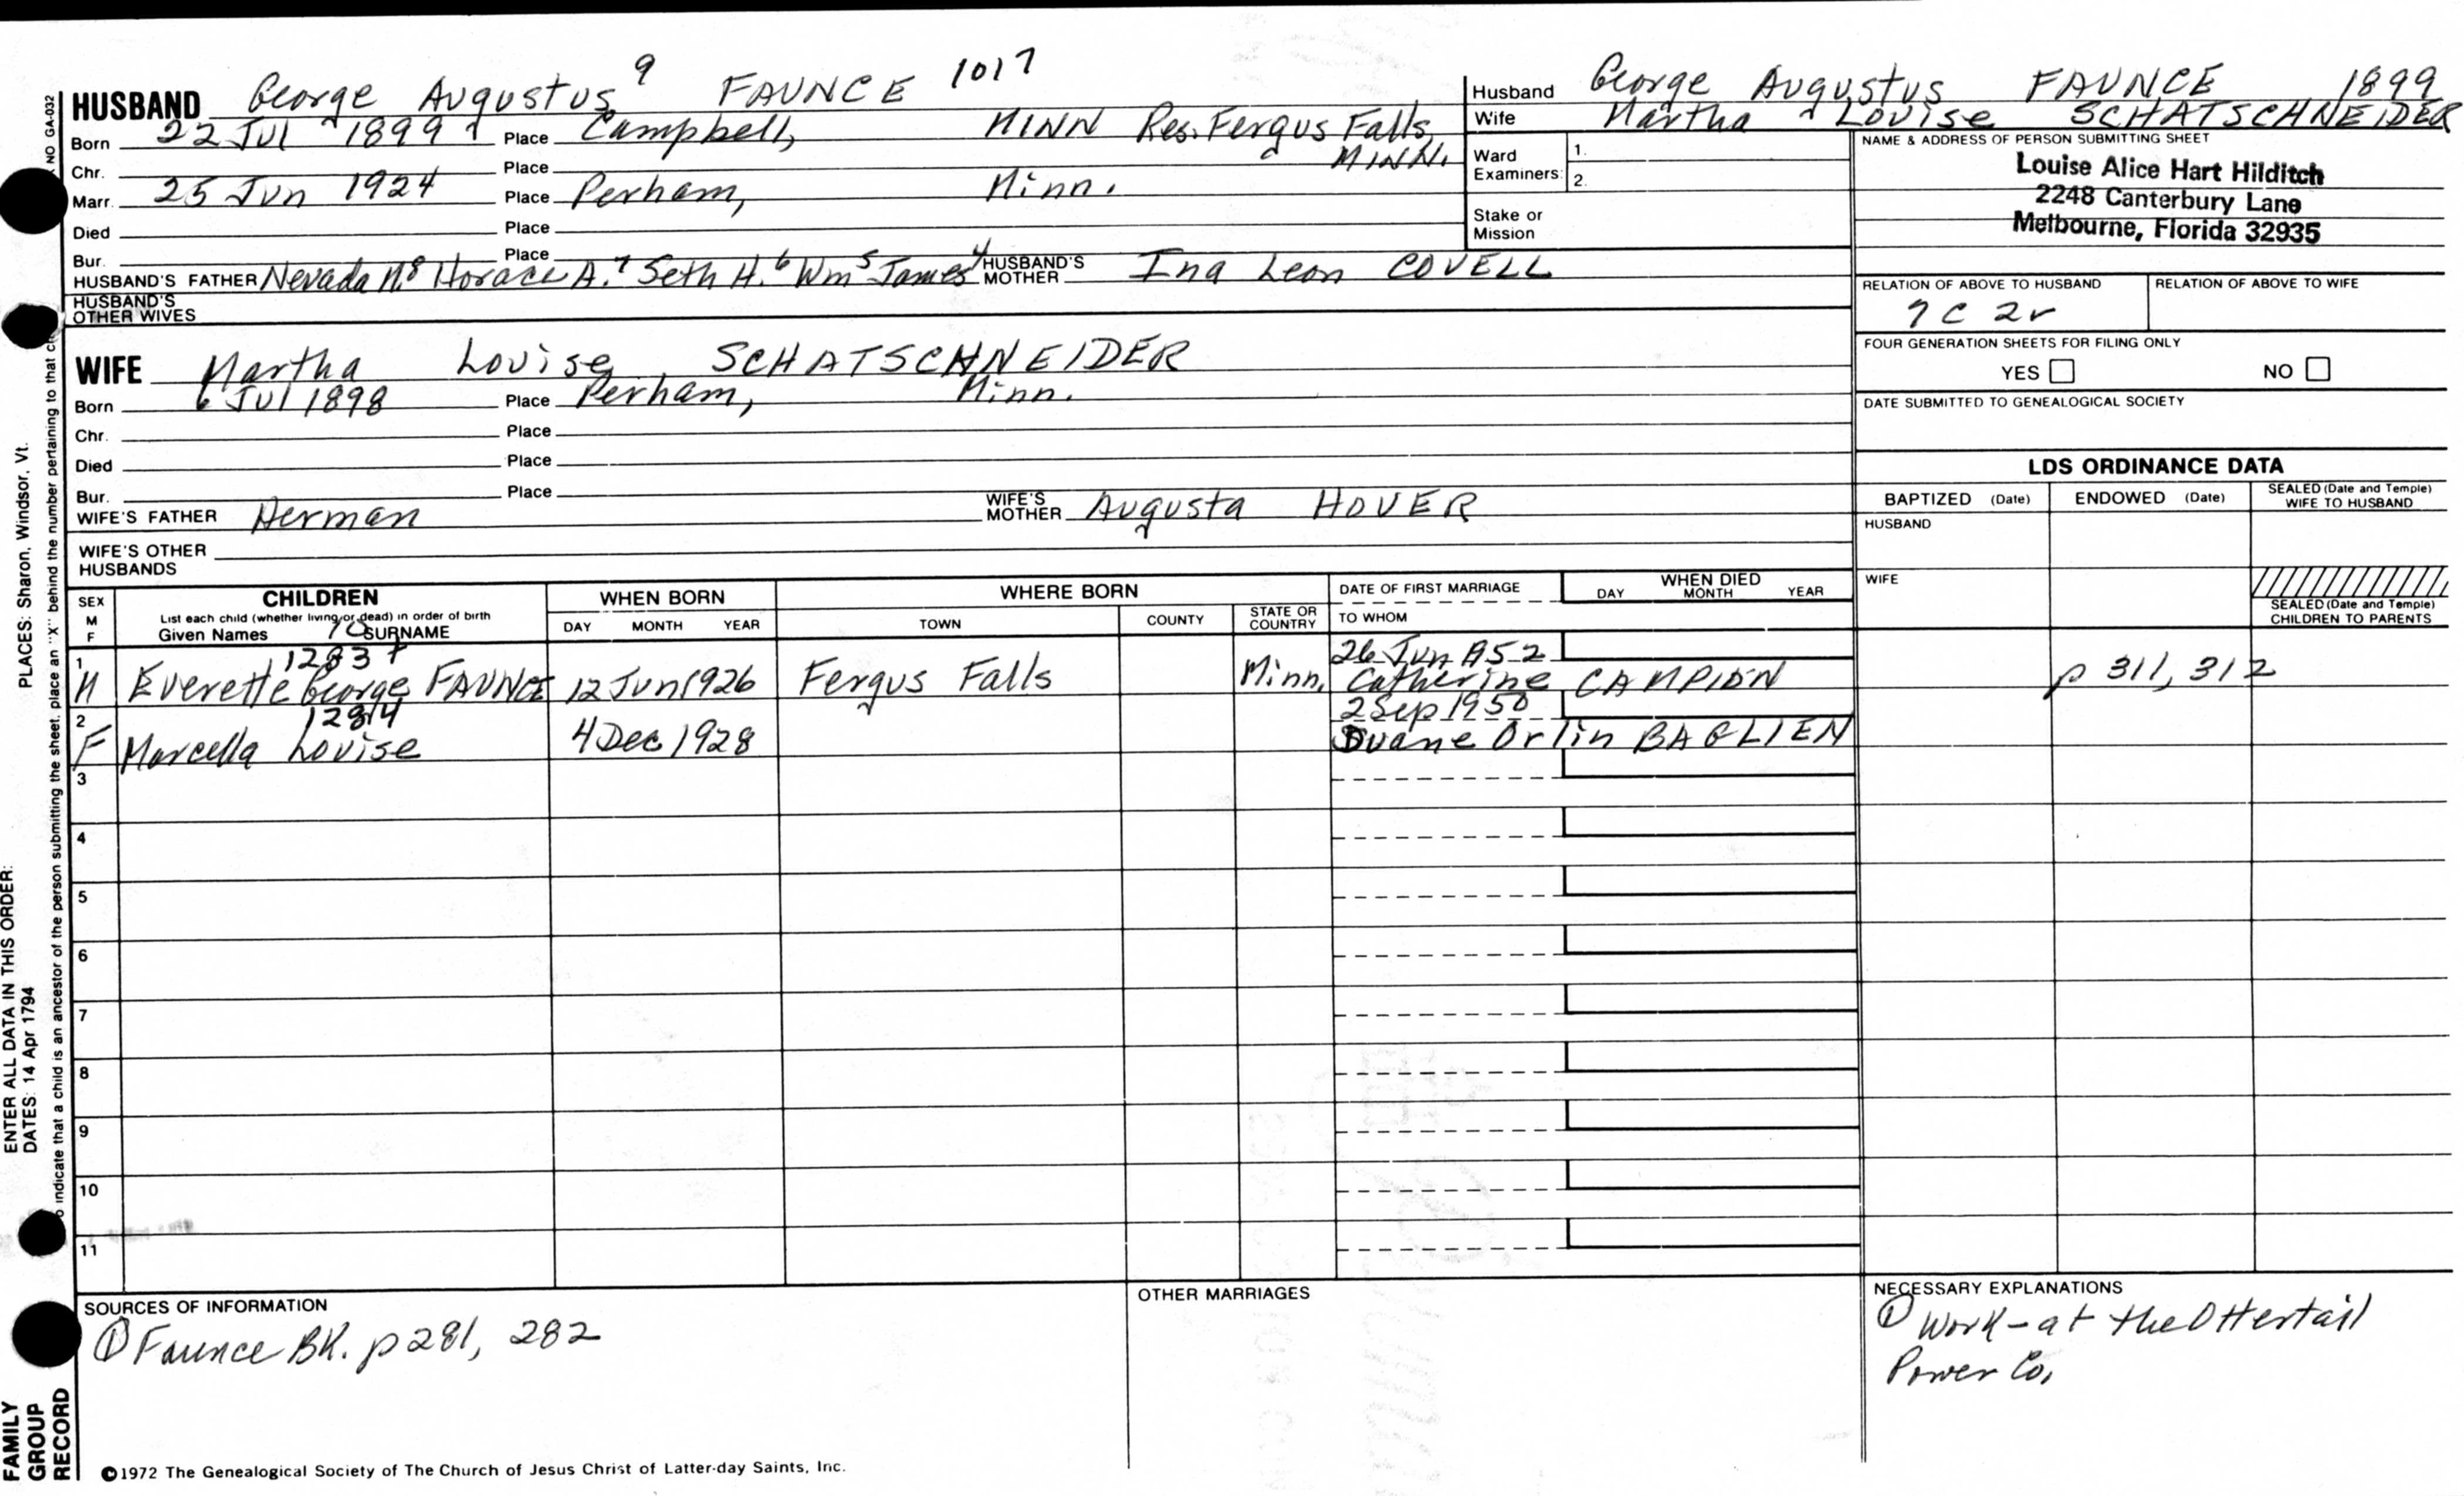 HUSBAND George Augustus 9 FAUNCE 1017
Born 22 Jul 1899 Place Campbell, MINN Res. Fergus Falls, MINN.
Chr. Place
Marr. 25 Jun 1924 Place Perham, Minn.
Died Place
Bur. Place
HUSBAND'S FATHER Nevada N.8 Horace A.7 Seth H.6 Wm5 James4 HUSBAND'S MOTHER Ina Leon COVELL
HUSBAND'S OTHER WIVES
WIFE Martha Louise SCHATSCHNEIDER
Born 6 Jul 1898 Place Perham, Minn.
Chr. Place
Died Place
Bur. Place
WIFE'S FATHER Herman WIFE'S MOTHER Augusta HOVER
WIFE'S OTHER HUSBANDS
Husband George Augustus FAUNCE 1899
Wife Martha Louise SCHATSCHNEIDER
Ward Examiners: 1.
2.
Stake or Mission
NAME & ADDRESS OF PERSON SUBMITTING SHEET
Louise Alice Hart Hilditch
2248 Canterbury Lane
Melbourne, Florida 32935
RELATION OF ABOVE TO HUSBAND RELATION OF ABOVE TO WIFE
7C 2r
FOUR GENERATION SHEETS FOR FILING ONLY
YES NO
DATE SUBMITTED TO GENEALOGICAL SOCIETY
LDS ORDINANCE DATA
BAPTIZED (Date) ENDOWED (Date) SEALED (Date and Temple) WIFE TO HUSBAND
HUSBAND
WIFE
SEALED (Date and Temple) CHILDREN TO PARENTS
SEX M F
CHILDREN
List each child (whether living or dead) in order of birth
Given Names 10 SURNAME
WHEN BORN
DAY MONTH YEAR
WHERE BORN
TOWN COUNTY STATE OR COUNTRY
DATE OF FIRST MARRIAGE
TO WHOM
WHEN DIED
DAY MONTH YEAR
1 1283+ 26 Jun 1952
M Everette George FAUNCE 12 Jun 1926 Fergus Falls Minn. Catherine CAMPION p 311, 312
2 1284 2 Sep 1950
F Marcella Louise 4 Dec 1928 Duane Orlin BAGLIEN
3
4
5
6
7
8
9
10
11
SOURCES OF INFORMATION
① Faunce BK. p 281, 282
OTHER MARRIAGES
NECESSARY EXPLANATIONS
① Work - at the Ottertail
Power Co.
©1972 The Genealogical Society of The Church of Jesus Christ of Latter-day Saints, Inc.
FAMILY
GROUP
RECORD
ENTER ALL DATA IN THIS ORDER:
DATES: 14 Apr 1794 PLACES: Sharon, Windsor, Vt.
indicate that a child is an ancestor of the person submitting the sheet, place an "X" behind the number pertaining to that
NO GA-032